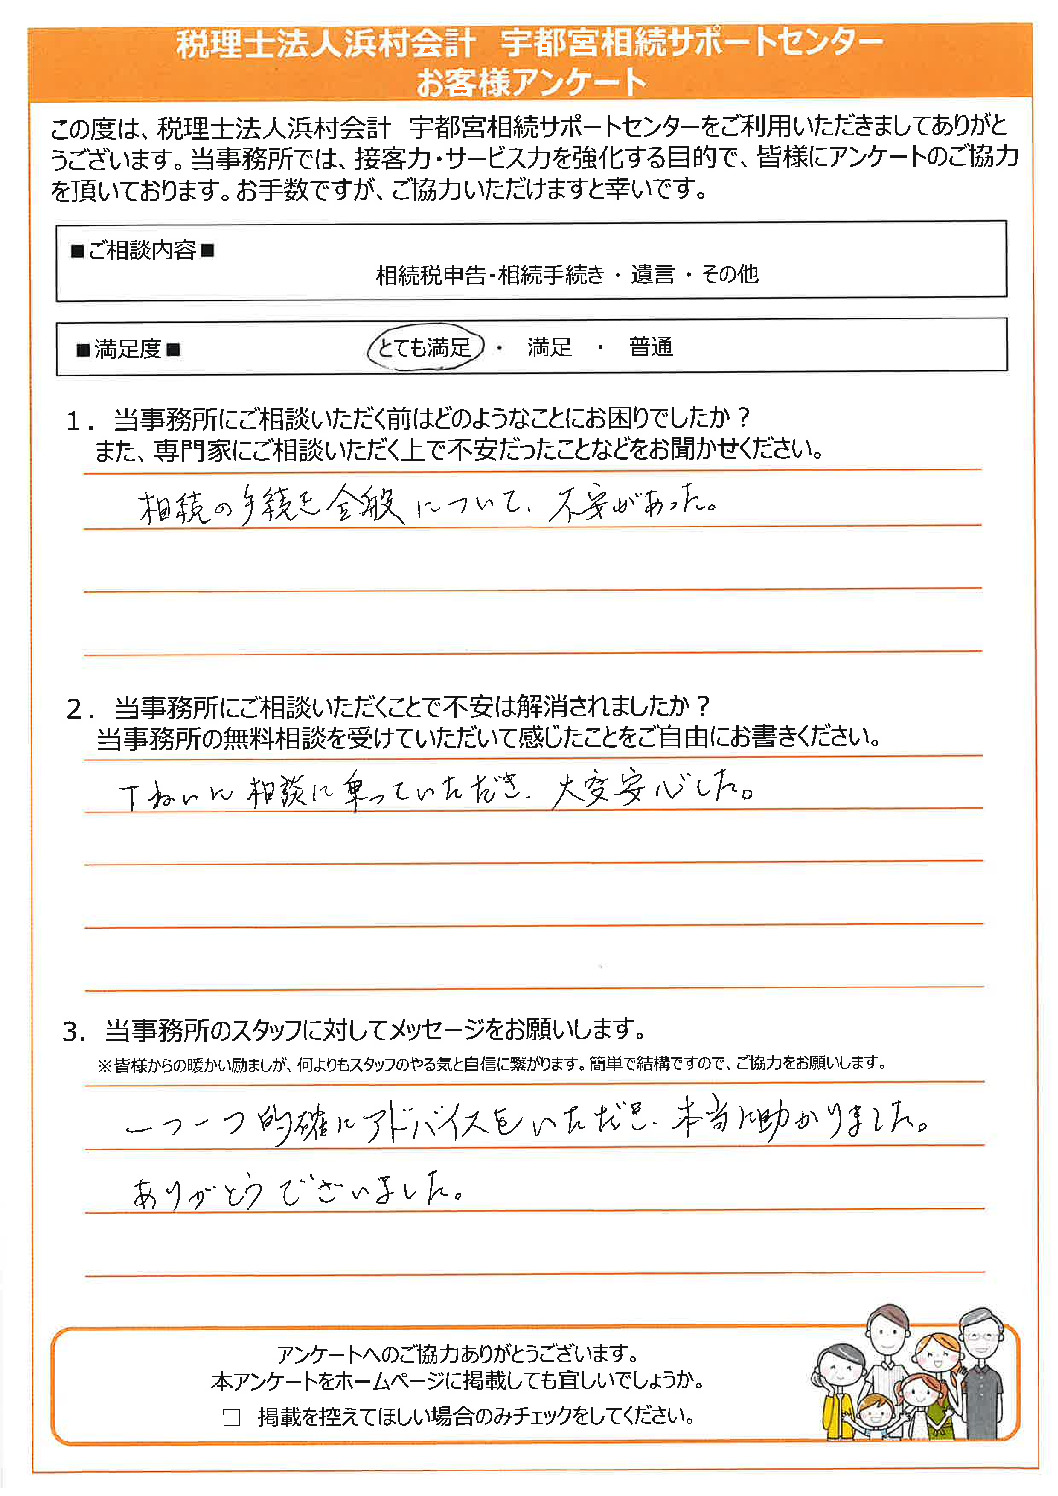 税理士法人浜村会計　宇都宮相続サポートセンター
お客様アンケート
この度は、税理士法人浜村会計　宇都宮相続サポートセンターをご利用いただきましてありがと
うございます。当事務所では、接客力・サービス力を強化する目的で、皆様にアンケートのご協力
を頂いております。お手数ですが、ご協力いただけますと幸いです。
■ご相談内容■
相続税申告・相続手続き ・ 遺言 ・ その他
■満足度■　とても満足 ・ 満足 ・ 普通
1．当事務所にご相談いただく前はどのようなことにお困りでしたか？
また、専門家にご相談いただく上で不安だったことなどをお聞かせください。
相続の手続き全般について、不安があった。
2．当事務所にご相談いただくことで不安は解消されましたか？
当事務所の無料相談を受けていただいて感じたことをご自由にお書きください。
丁ねいに相談に乗っていただき、大変安心した。
3．当事務所のスタッフに対してメッセージをお願いします。
※皆様からの暖かい励ましが、何よりもスタッフのやる気と自信に繋がります。簡単で結構ですので、ご協力をお願いします。
一つ一つ的確にアドバイスをいただき、本当に助かりました。
ありがとうございました。
アンケートへのご協力ありがとうございます。
本アンケートをホームページに掲載しても宜しいでしょうか。
□ 掲載を控えてほしい場合のみチェックをしてください。